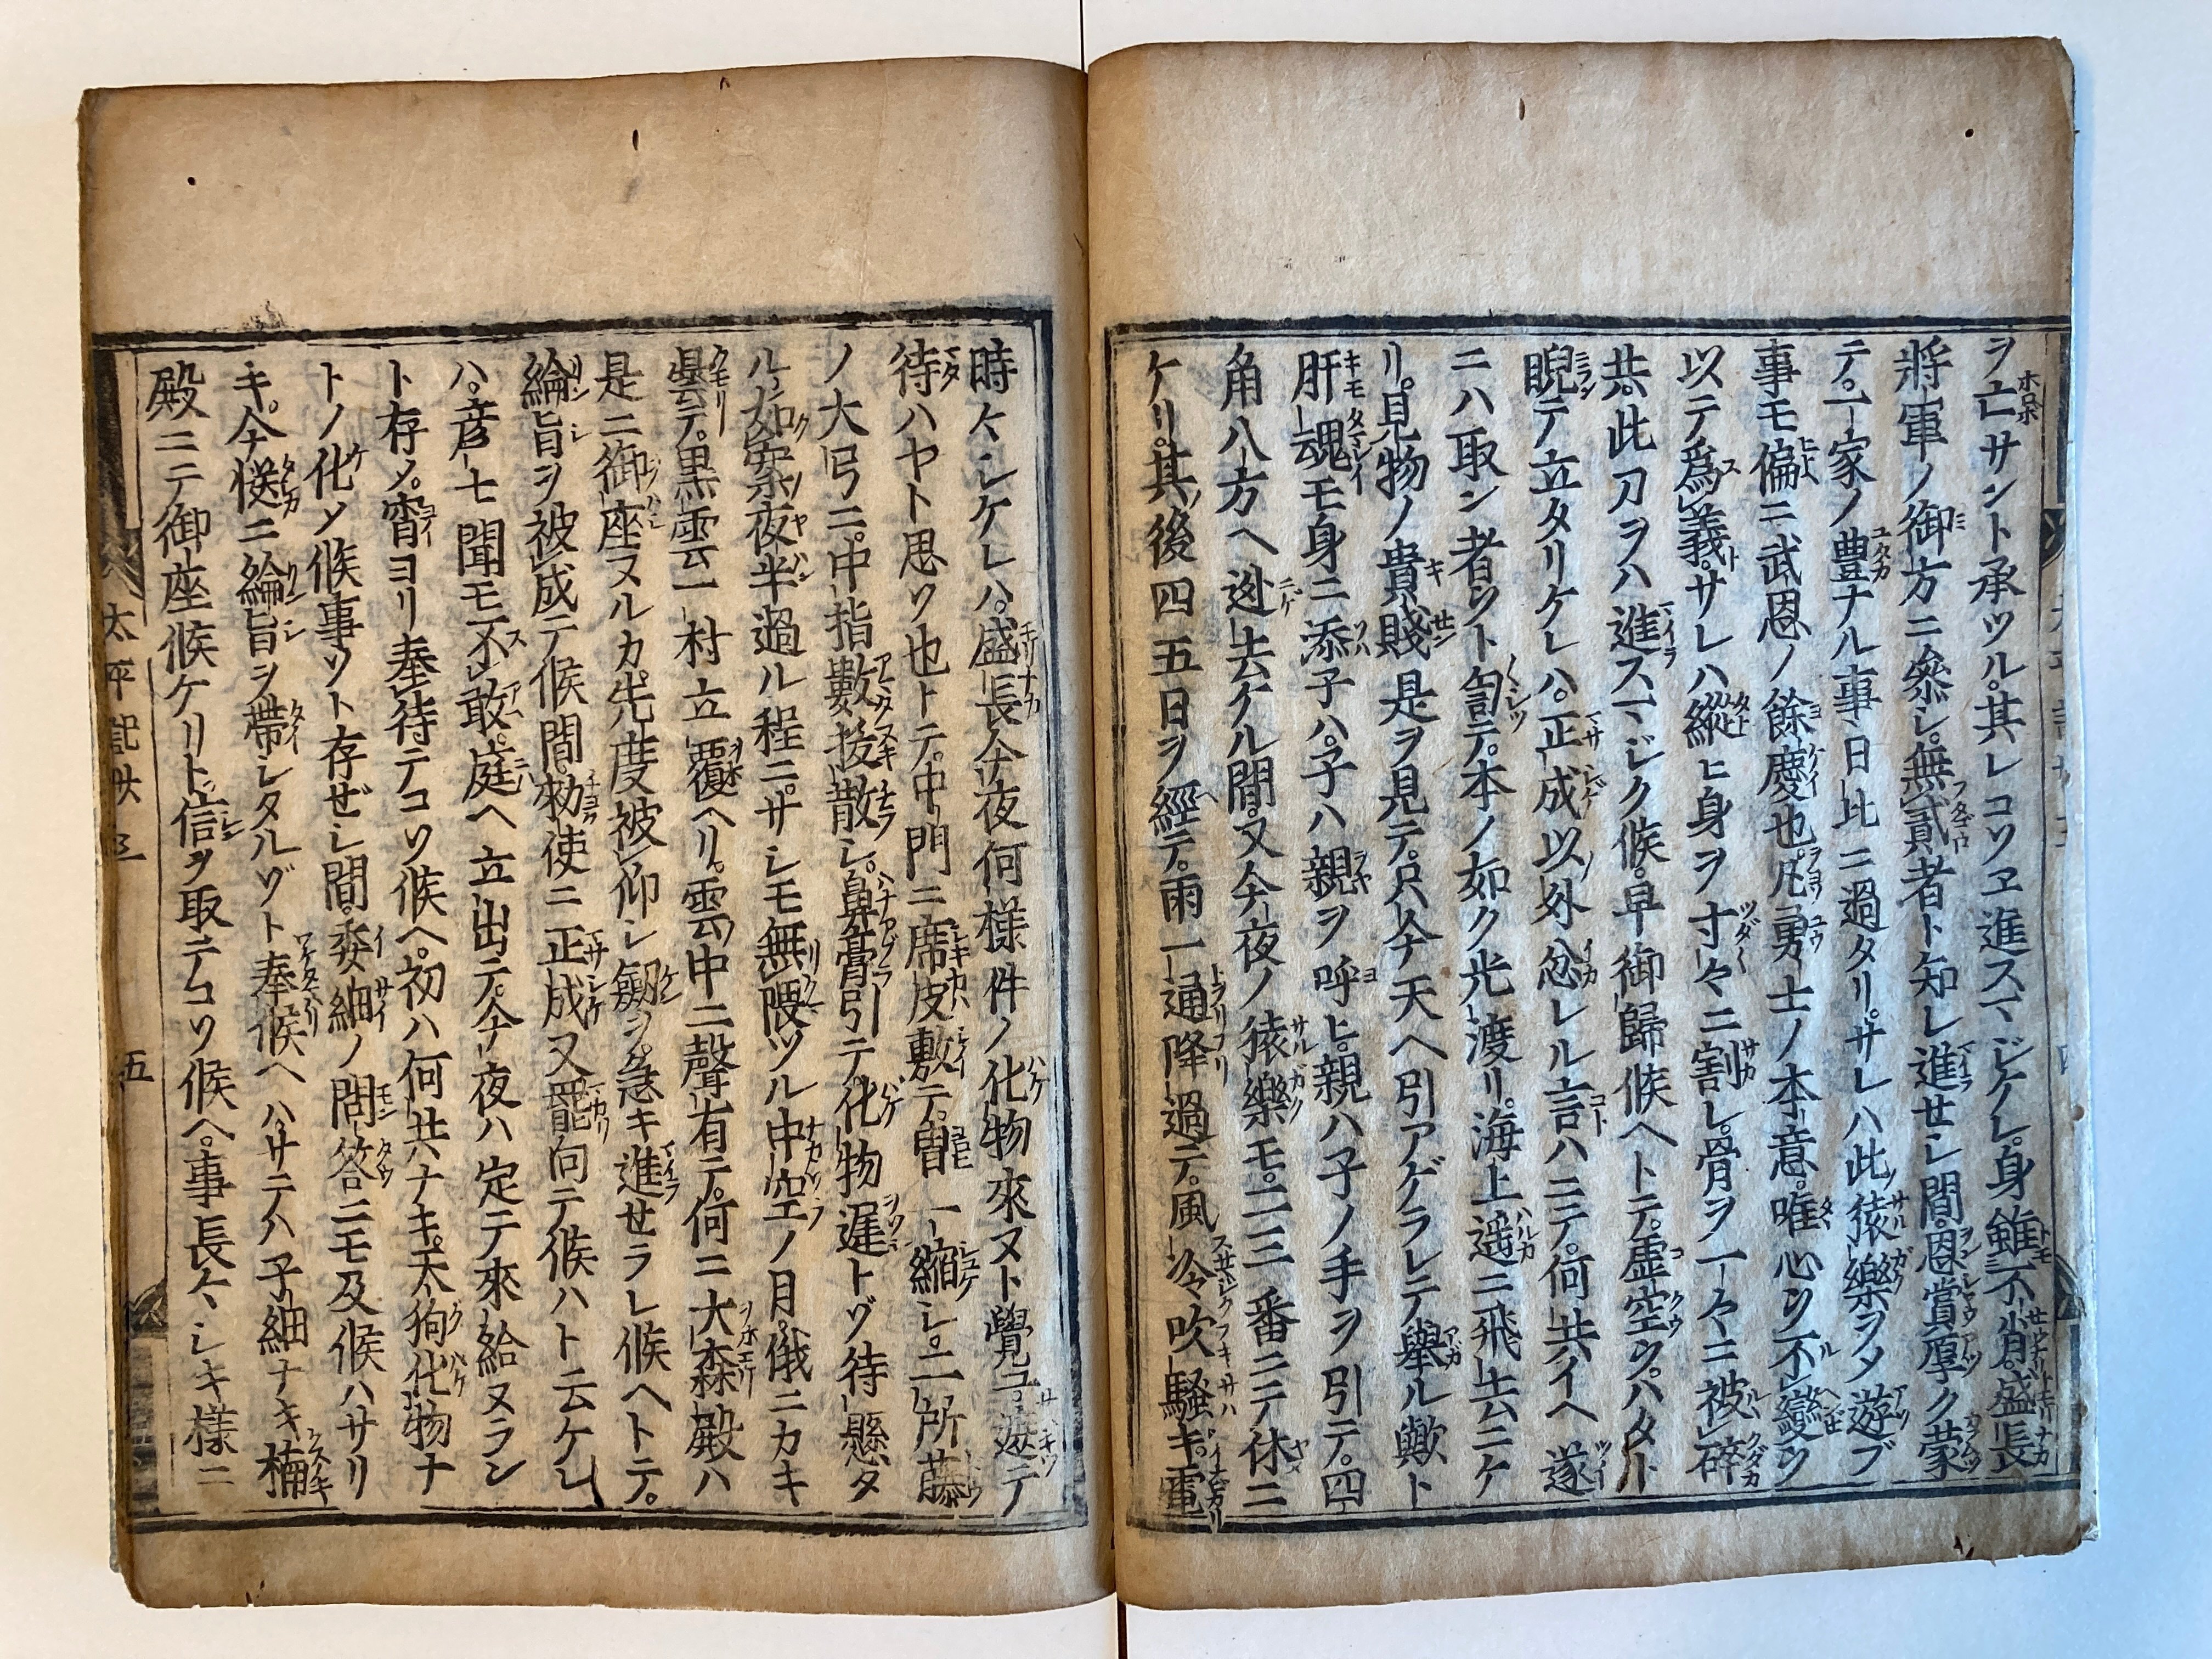 ヲ亡サント承ツル。其レコソヱ進スマジケレ。身雖不肖。盛長
將軍ノ御方ニ參シ。無貳者ト知レ進セシ間。恩賞厚ク蒙
テ。一家ノ豊ナル事日比ニ過タリ。サレハ此猿樂ヲメ遊ブ
事モ偏ニ武恩ノ餘慶也。凡勇士ノ本意。唯心ヲ不變ヲ
以テ爲義。サレハ縱ヒ身ヲ寸々ニ割レ。骨ヲ一々ニ被碎
共。此刀ヲハ進スマジク候。早御歸候ヘトテ。虚空ヲハタト
睨テ立タリケレハ。正成以外忿レル言ハニテ。何共イヘ遂
ニハ取ン者ヲト匃テ。本ノ如ク光渡リ。海上遥ニ飛去ニケ
リ。見物ノ貴賤是ヲ見テ。只今天ヘ引アゲラレテ擧ル歟ト
肝魂モ身ニ添子ハ。子ハ親ヲ呼ヒ。親ハ子ノ手ヲ引テ。四
角八方ヘ迯去ケル間。又今夜ノ猿樂モ。二三番ニテ休ニ
ケリ。其後四五日ヲ經テ。雨一通降過テ。風冷吹騷キ。電
時々シケレハ。盛長今夜何樣件ノ化物來ヌト覺ユ。遊テ
待ハヤト思ソ也トテ。中門ニ席皮敷テ。冑一縮シ。二所藤
ノ大弓ニ。中指數抜散シ。鼻膏引テ化物遲トゾ待懸タ
ル。如案夜半過ル程ニ。サシモ無隈ツル中空ノ月。俄ニカキ
曇テ。黒雲一村立覆ヘリ。雲中ニ聲有テ。何ニ大森殿ハ
是ニ御座ヌルカ。先度被仰シ劔ヲ。急キ進セラレ候ヘトテ。
綸旨ヲ被成テ候間。勅使ニ正成又罷向テ候ハト云ケレ
ハ。彦七聞モ不敢。庭ヘ立出テ。今夜ハ定テ來給ヌラン
ト存メ。宵ヨリ奉待テコソ候ヘ。初ハ何共ナキ。天狗化物ナ
トノ化ソ候事ソト存ぜシ間。委細ノ問答ニモ及候ハサリ
キ。今慥ニ綸旨ヲ帶シタルゾト奉候ヘハ。サテハ子細ナキ楠
殿ニテ御座候ケリト。信ヲ取テコソ候ヘ。事長々シキ樣ニ
太平記廿三
五